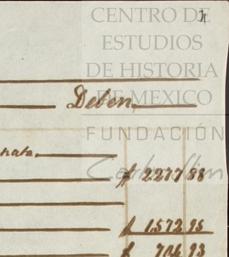 CENTRO DE
ESTUDIOS
DE HISTORIA
DE MEXICO
Deben
FUNDACIÓN
Carlos Slim
$ 2277 88
$ 1572 95
$ 704 93